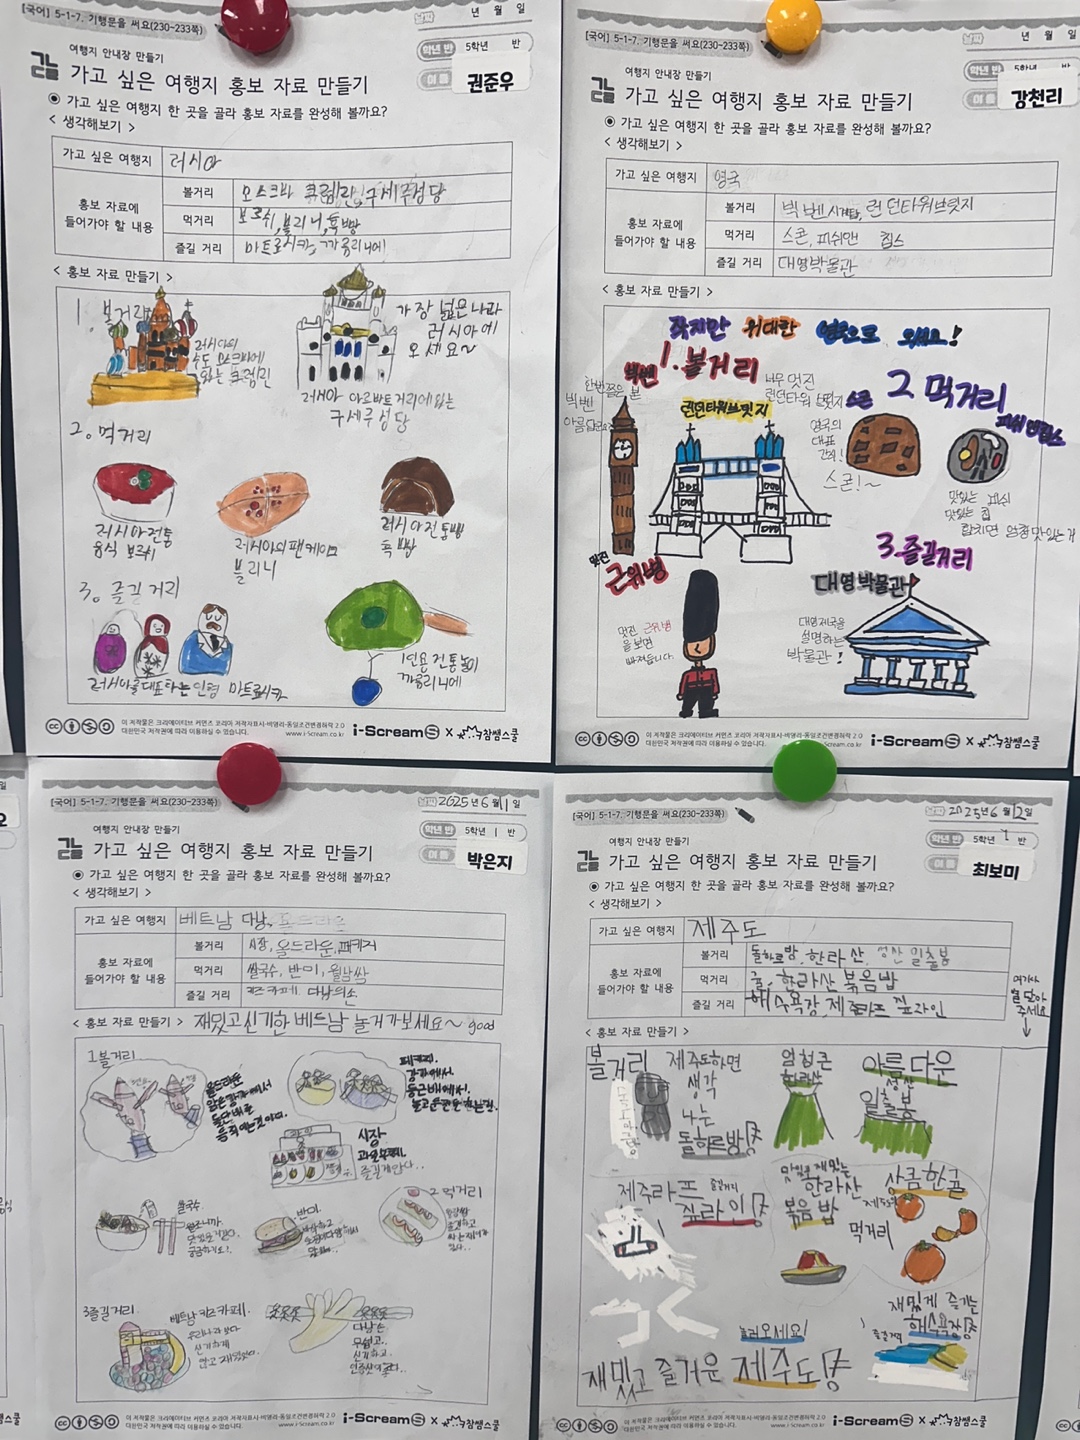 [국어] 5-1-7. 기행문을 써요(230~233쪽)
년 월 일
학년 반 5학년 반
여행지 안내장 만들기
가고 싶은 여행지 홍보 자료 만들기
이름 권준우
◉ 가고 싶은 여행지 한 곳을 골라 홍보 자료를 완성해 볼까요?
< 생각해보기 >
가고 싶은 여행지 러시아
홍보 자료에 들어가야 할 내용
볼거리 모스크바 크렘린, 구세주성당
먹거리 보르쉬, 블리니, 흑빵
즐길 거리 마트료시카, 까롤리니에
< 홍보 자료 만들기 >
1. 볼거리
러시아의
수도 모스크바에
있는 크렘린
가장 넓은 나라
러시아에
오세요~
러시아 아르바트 거리에 있는
구세주 성당
2. 먹거리
러시아 전통
음식 보르쉬
러시아의 팬케이크
블리니
러시아 전통빵
흑빵
3. 즐길 거리
러시아를 대표하는 인형 마트료시카
1인용 전통놀이
까롤리니에
이 저작물은 크리에이티브 커먼즈 코리아 저작자표시-비영리-동일조건변경허락 2.0
대한민국 저작권에 따라 이용하실 수 있습니다. www.i-scream.co.kr
i-Scream S × 참쌤스쿨
[국어] 5-1-7. 기행문을 써요(230~233쪽)
년 월 일
학년 반 5학년 반
여행지 안내장 만들기
가고 싶은 여행지 홍보 자료 만들기
강천리
◉ 가고 싶은 여행지 한 곳을 골라 홍보 자료를 완성해 볼까요?
< 생각해보기 >
가고 싶은 여행지 영국
홍보 자료에 들어가야 할 내용
볼거리 빅 벤 시계탑, 런던타워브릿지
먹거리 스콘, 피쉬앤 칩스
즐길 거리 대영박물관
< 홍보 자료 만들기 >
작지만 위대한 영국으로 오세요!
1. 볼거리
빅벤
한번쯤은 본
빅벤
런던타워브릿지
너무 멋진
런던타워 브릿지
2 먹거리
스콘
영국의
대표
간식!
스콘!~
피쉬앤칩스
맛있는 피쉬
맛있는 칩
합치면 엄청 맛있는 거
멋진
근위병
멋진 근위병
을 보면
빠져듭니다.
3. 즐길거리
대영박물관
대영제국을
설명하는
박물관!
이 저작물은 크리에이티브 커먼즈 코리아 저작자표시-비영리-동일조건변경허락 2.0
대한민국 저작권에 따라 이용하실 수 있습니다. www.i-scream.co.kr
i-Scream S × 참쌤스쿨
[국어] 5-1-7. 기행문을 써요(230~233쪽)
날짜 2025년 6월 11일
학년 반 5학년 1 반
여행지 안내장 만들기
가고 싶은 여행지 홍보 자료 만들기
이름 박은지
◉ 가고 싶은 여행지 한 곳을 골라 홍보 자료를 완성해 볼까요?
< 생각해보기 >
가고 싶은 여행지 베트남 다낭,
홍보 자료에 들어가야 할 내용
볼거리 시장, 올드타운,
먹거리 쌀국수, 반미, 월남쌈
즐길 거리 키즈카페. 다낭의손
< 홍보 자료 만들기 > 재밌고 신기한 베트남 놀러가보세요~ good
1 볼거리
시장
쌀국수
반미.
2 먹거리
3 즐길거리.
베트남 키즈카페.
우리나라 보다
신기하게
다낭손
무섭고..
신기하고
이 저작물은 크리에이티브 커먼즈 코리아 저작자표시-비영리-동일조건변경허락 2.0
대한민국 저작권에 따라 이용하실 수 있습니다. www.i-scream.co.kr
i-Scream S × 참쌤스쿨
[국어] 5-1-7. 기행문을 써요(230~233쪽)
날짜 2025년 6월 12일
학년 반 5학년 1 반
여행지 안내장 만들기
가고 싶은 여행지 홍보 자료 만들기
이름 최보미
◉ 가고 싶은 여행지 한 곳을 골라 홍보 자료를 완성해 볼까요?
< 생각해보기 >
가고 싶은 여행지 제주도
홍보 자료에 들어가야 할 내용
볼거리 돌하르방, 한라산, 성산 일출봉
먹거리 귤, 한라산 볶음밥
즐길 거리 해수욕장, 제주라프 짚라인
< 홍보 자료 만들기 >
볼거리
제주도하면
생각
나는
돌하르방!
엄청큰
한라산
아름다운
성산
일출봉
제주라프 즐길거리
짚라인!
맛있고 재밌는
한라산
볶음밥
먹거리
상큼한 귤
제주도
재밌게 즐기는
해수욕장!
즐길거리
놀러오세요!
재밌고 즐거운 제주도!
이 저작물은 크리에이티브 커먼즈 코리아 저작자표시-비영리-동일조건변경허락 2.0
대한민국 저작권에 따라 이용하실 수 있습니다. www.i-scream.co.kr
i-Scream S × 참쌤스쿨